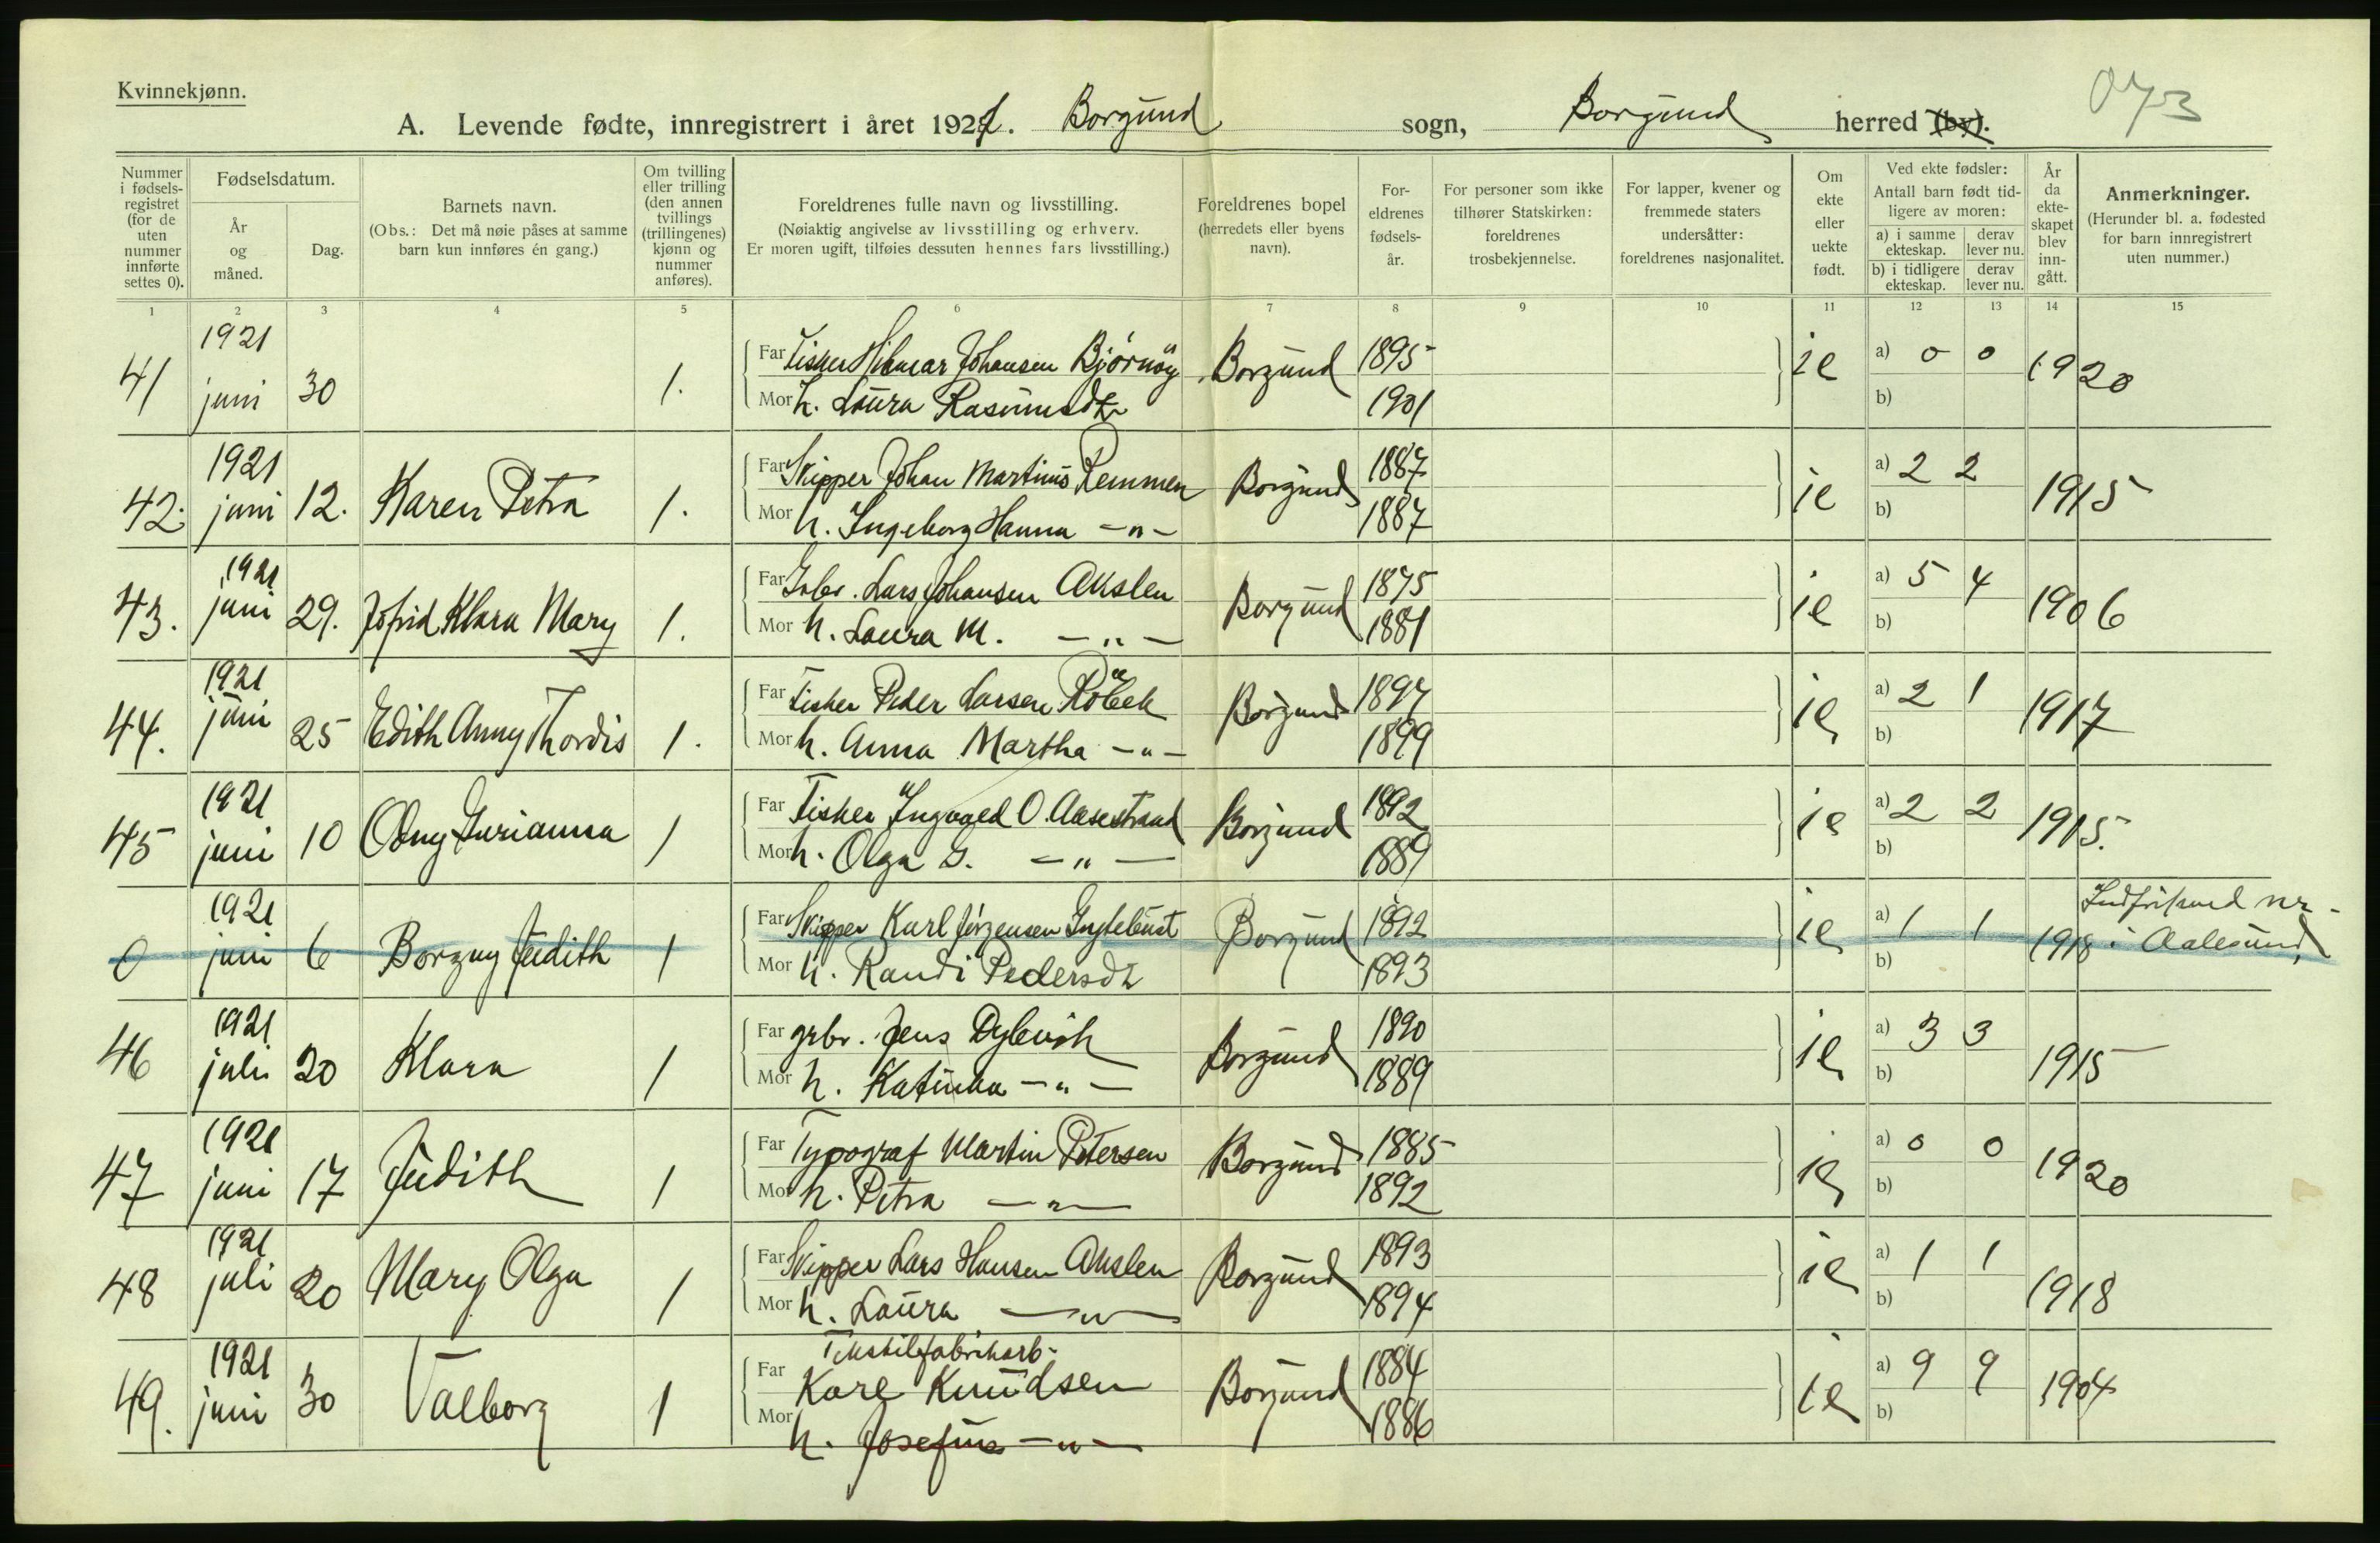 Kvinnekjønn.
073
A. Levende fødte, innregistrert i året 1921. Borgund sogn, Borgund herred (by).
Nummer i fødselsregistret (for de uten nummer innførte settes 0).
Fødselsdatum.
År og måned.
Dag.
Barnets navn.
(Obs.: Det må nøie påses at samme barn kun innføres én gang.)
Om tvilling eller trilling (den annen tvillings (trillingenes) kjønn og nummer anføres).
Foreldrenes fulle navn og livsstilling.
(Nøiaktig angivelse av livsstilling og erhverv.
Er moren ugift, tilføies dessuten hennes fars livsstilling.)
Foreldrenes bopel (herredets eller byens navn).
Foreldrenes fødselsår.
For personer som ikke tilhører Statskirken: foreldrenes trosbekjennelse.
For lapper, kvener og fremmede staters undersåtter: foreldrenes nasjonalitet.
Om ekte eller uekte født.
Ved ekte fødsler:
Antall barn født tidligere av moren:
a) i samme ekteskap. derav lever nu.
b) i tidligere ekteskap. derav lever nu.
År da ekteskapet blev inngått.
Anmerkninger.
(Herunder bl. a. fødested for barn innregistrert uten nummer.)
1 2 3 4 5 6 7 8 9 10 11 12 13 14 15
41 1921 juni 30 1. Far Fisker Hilmar Johansen Bjørnøy Borgund 1895 ie a) 0 0 1920
Mor h. Laura Rasmusdtr 1901 b)
42. 1921 juni 12. Karen Petra 1. Far Skipper Johan Martinus Remmen Borgund 1887 ie a) 2 2 1915
Mor h. Ingeborg Hanna -"- 1887 b)
43. 1921 juni 29. Jofrid Klara Mary 1. Far Grbr. Lars Johansen Akslen Borgund 1875 ie a) 5 4 1906
Mor h. Laura M. -"- 1881 b)
44. 1921 juni 25 Edith Anny Thordis 1. Far Fisker Peder Larsen Röbek Borgund 1897 ie a) 2 1 1917
Mor h. Anna Martha -"- 1899 b)
45 1921 juni 10 Odny Gurianna 1 Far Fisker Ingvald O. Aasestrand Borgund 1892 ie a) 2 2 1915.
Mor h. Olga G. -"- 1889 b)
0 1921 juni 6 Borgny Judith 1 Far Skipper Karl Jörgensen Ingebust Borgund 1892 ie a) 1 1 1918 nr. i Aalesund
Mor h. Randi Pedersdtr 1893 b)
46 1921 juli 20 Klara 1 Far grbr. Jens Borgund 1890 ie a) 3 3 1915
Mor h. Katinka -"- 1889 b)
47 1921 juni 17 Judith 1 Far Typograf Martin Petersen Borgund 1885 ie a) 0 0 1920
Mor h. Petra -"- 1892 b)
48 1921 juli 20 Mary Olga 1 Far Skipper Lars Hansen Akslen Borgund 1893 ie a) 1 1 1918
Mor h. Laura -"- 1894 b)
Tekstilfabrikarb.
49. 1921 juni 30 Valborg 1 Far Karl Knudsen Borgund 1884 ie a) 9 9 1904
Mor h. Josefine -"- 1886 b)